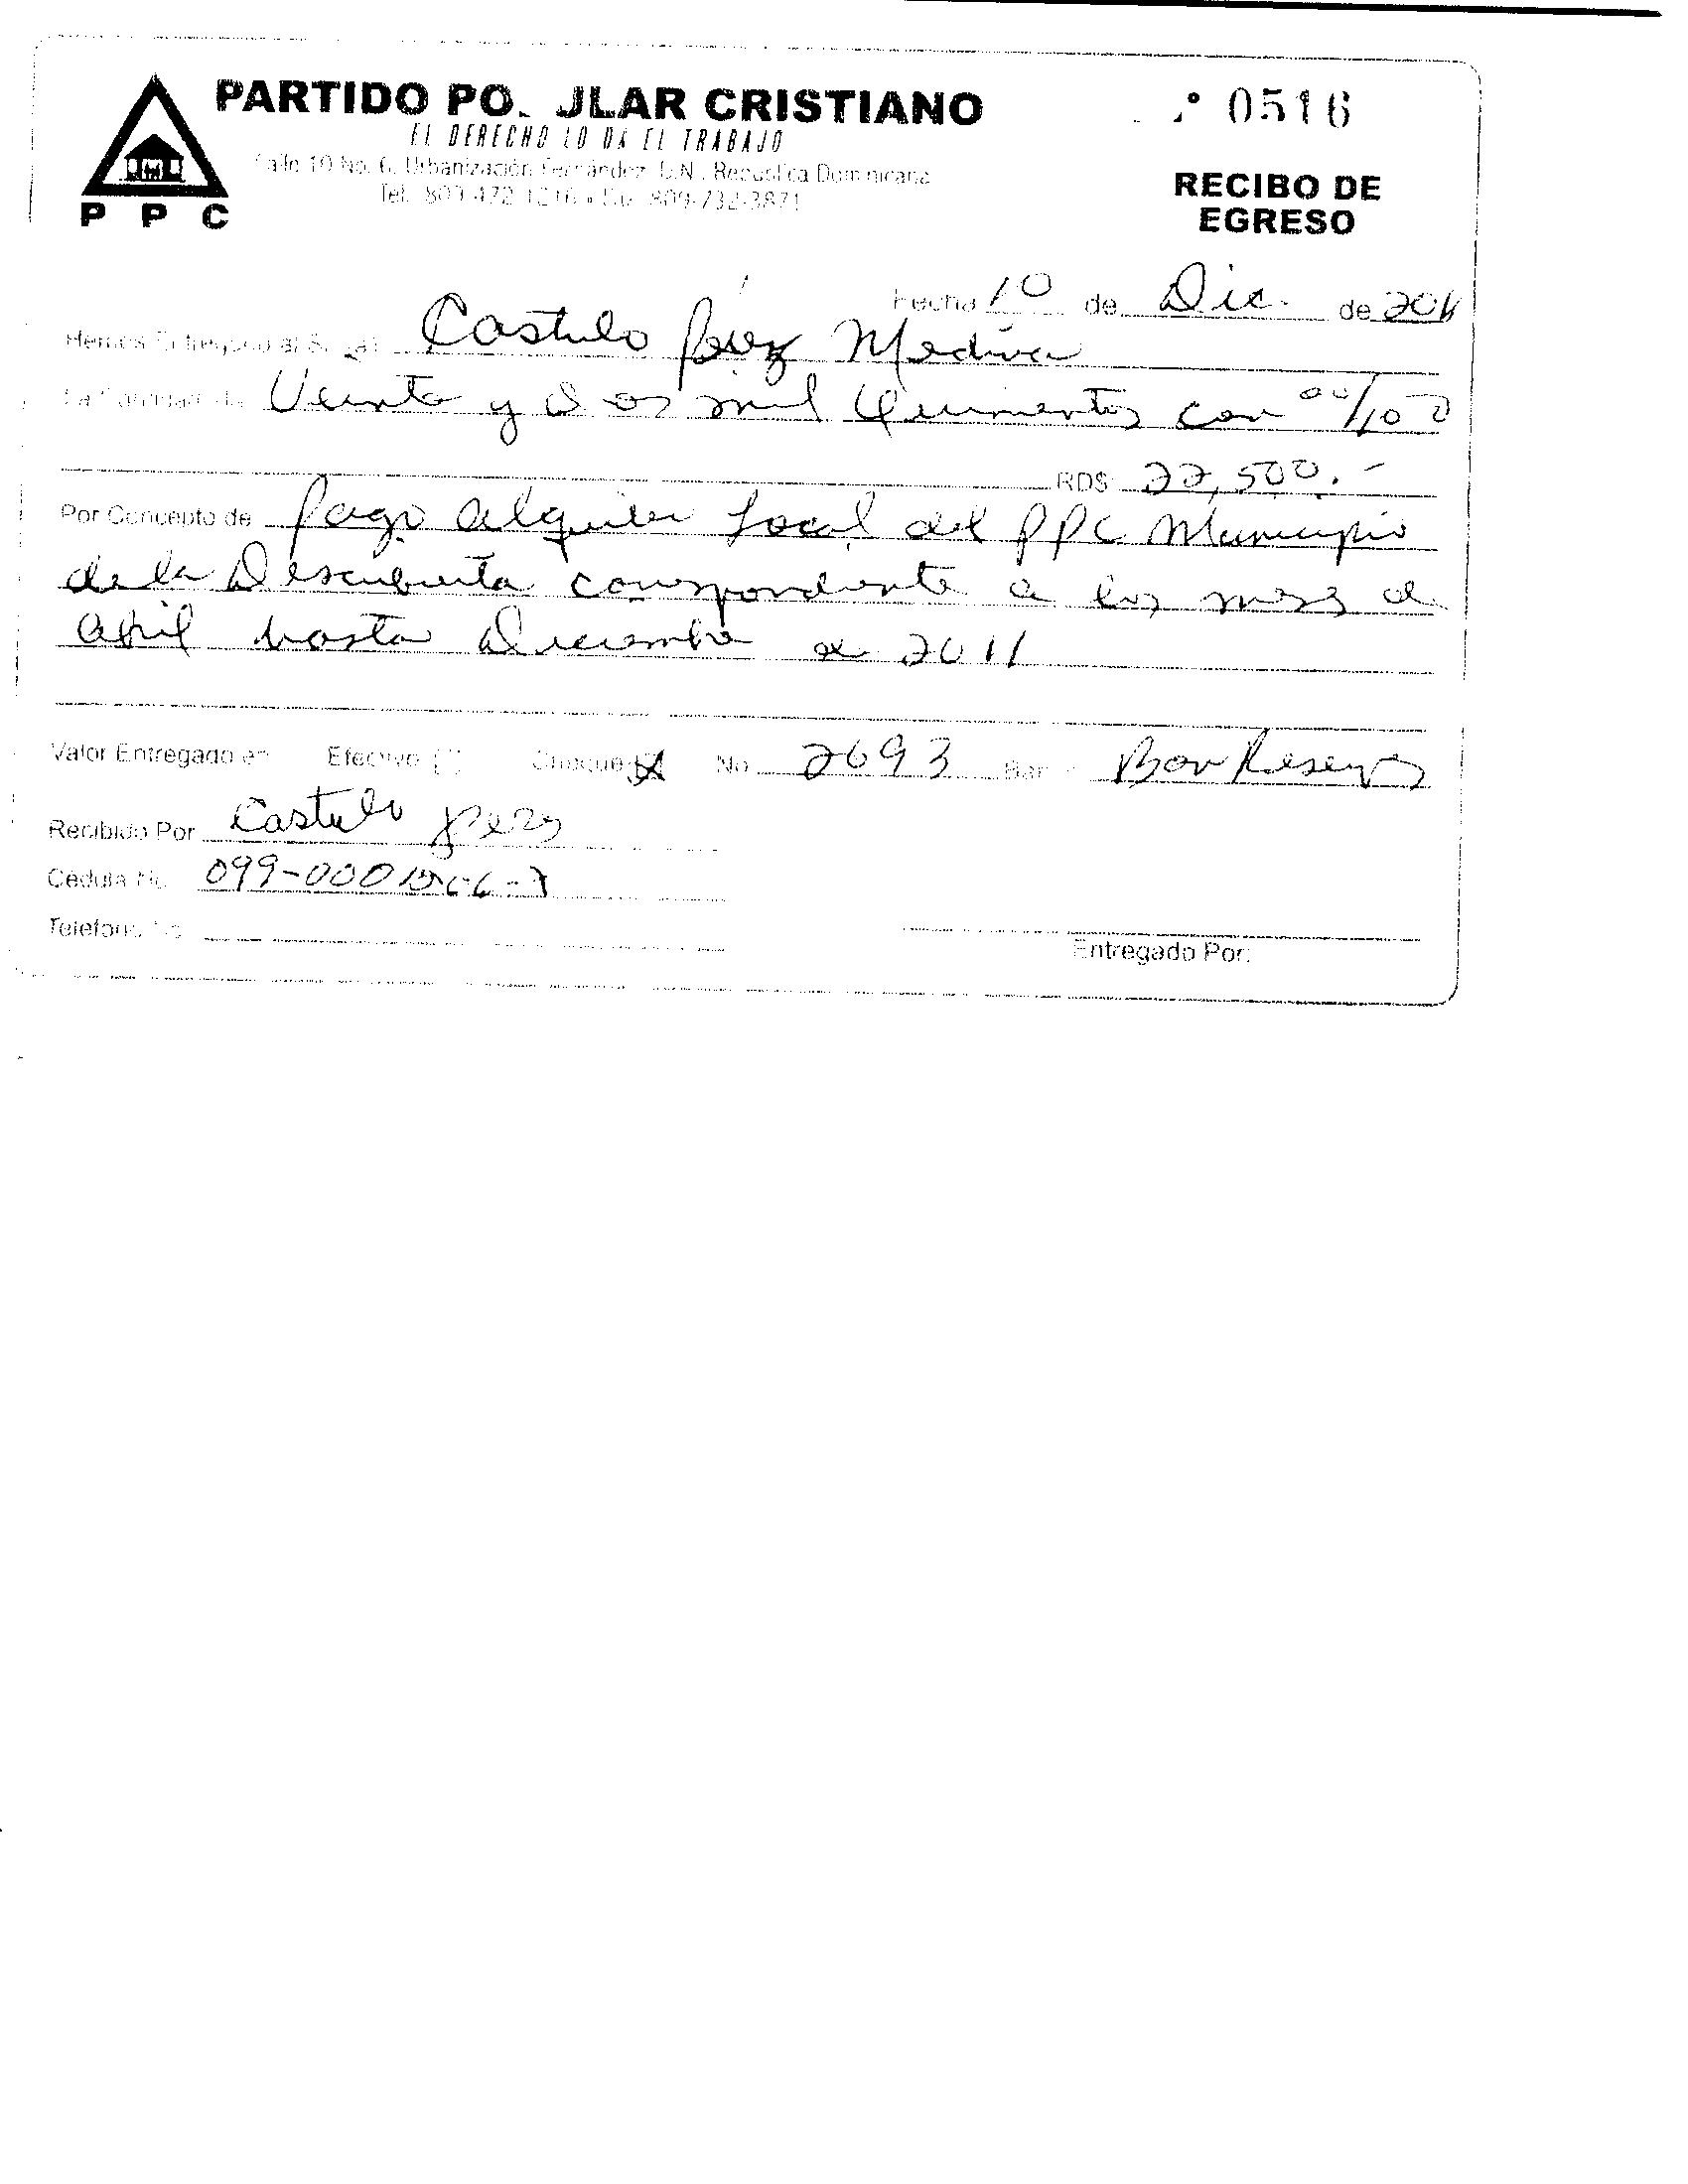 PARTIDO PO. JLAR CRISTIANO
EL DERECHO LO DA EL TRABAJO
Calle 10 No. 6, Urbanización Fernández, D.N., República Dominicana
Tel. 809-472-1216 • 809-732-3871
P P C
0516
RECIBO DE
EGRESO
Fecha 10 de Dic. de 2011
Hemos Entregado al Sr. (a) Castulo Pérez Medina
La Cantidad de Veinte y Dos mil Quinientos con 00/100
RD$ 22,500.-
Por Concepto de Pago alquiler Local del PPC Municipio
de la Descubierta correspondiente a los meses de
Abril hasta Diciembre de 2011
Valor Entregado en Efectivo Cheque No. 2693 Banco Ban Reservas
Recibido Por Castulo perez
Cédula No. 099-000
Teléfono No.
Entregado Por: